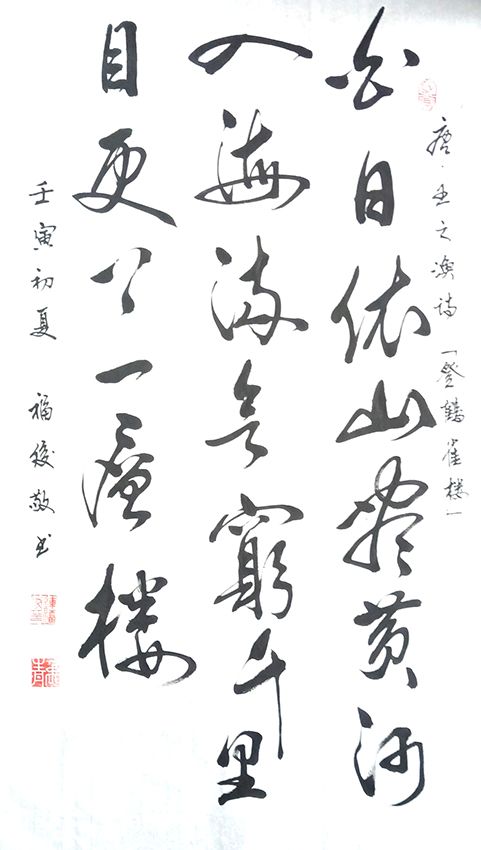 唐·王之涣诗「登鹳雀楼」
白日依山盡黄河
入海流欲窮千里
目更上一層楼
壬寅初夏 福俊敬书